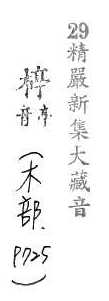 29精嚴新集大藏音
㮄音亭
(木部.P725)